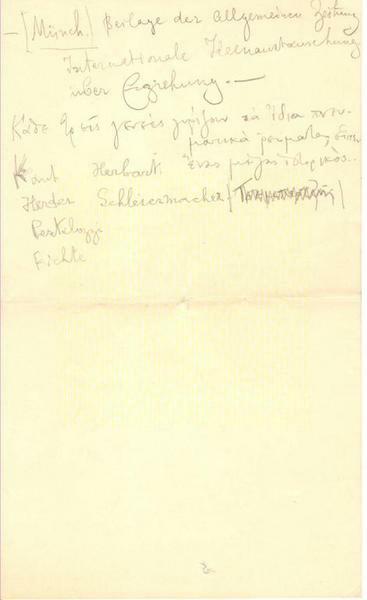 — [Münch.] Beilage der Allgemeinen Zeitung
Internationale Ideenaustauschung
über Erziehung. —
Κάθε τρεῖς γενεές γυρίζουν τὰ ἴδια πνευ-
ματικὰ ρεύματα,
Kant Herbart. Ἕνας μεγάλος
Herder Schleiermacher
Pestalozzi
Fichte